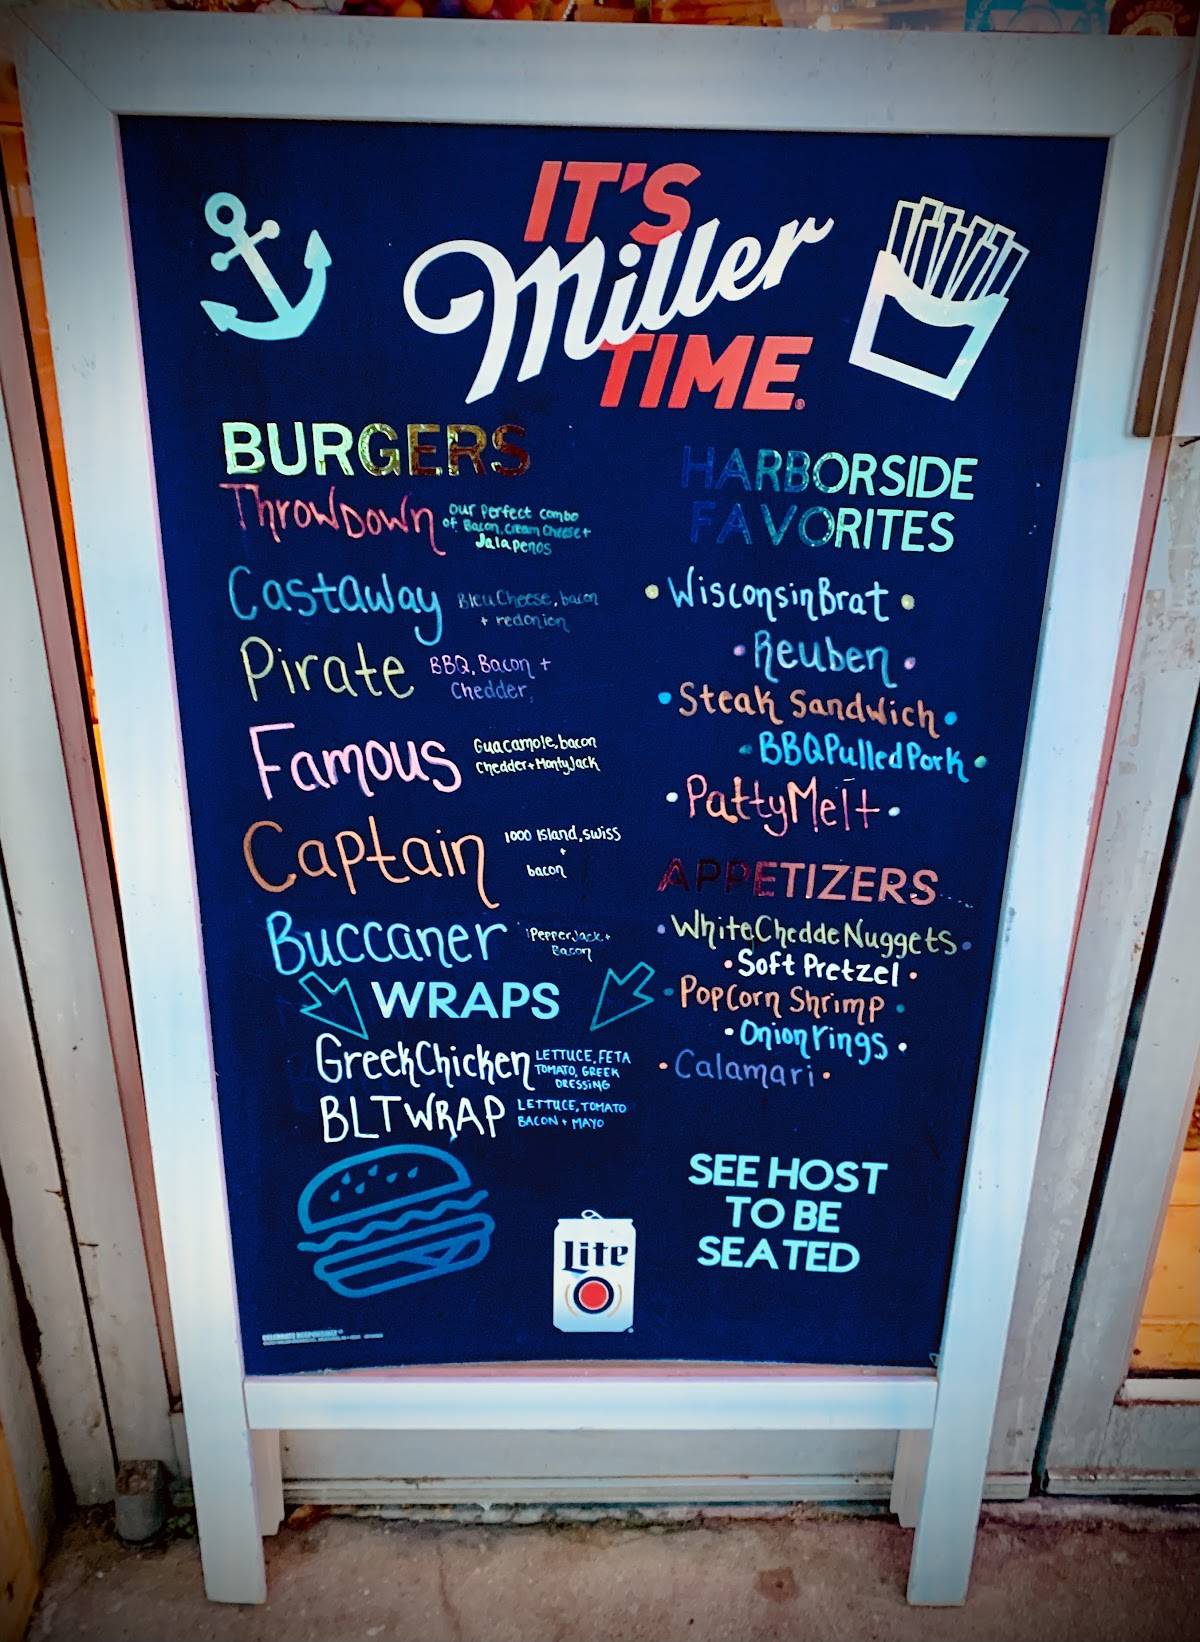 IT'S
Miller
TIME
BURGERS
Throwdown our perfect combo
of Bacon, Cream Cheese +
Jalapenos
Castaway Bleu Cheese, bacon
+ redonion
Pirate BBQ, Bacon +
Chedder,
Famous Guacamole, bacon
Chedder + MontyJack
Captain 1000 Island, swiss
+
bacon
Buccaner PepperJack +
Bacon
WRAPS
GreekChicken LETTUCE, FETA
TOMATO, GREEK
DRESSING
BLT WRAP LETTUCE, TOMATO
BACON + MAYO
HARBORSIDE
FAVORITES
• WisconsinBrat •
• Reuben •
• Steak Sandwich •
• BBQPulledPork •
• PattyMelt •
APPETIZERS
• WhiteCheddeNuggets •
• Soft Pretzel •
• PopCorn Shrimp •
• Onion rings •
• Calamari •
SEE HOST
TO BE
SEATED
Lite
CELEBRATE RESPONSIBLY